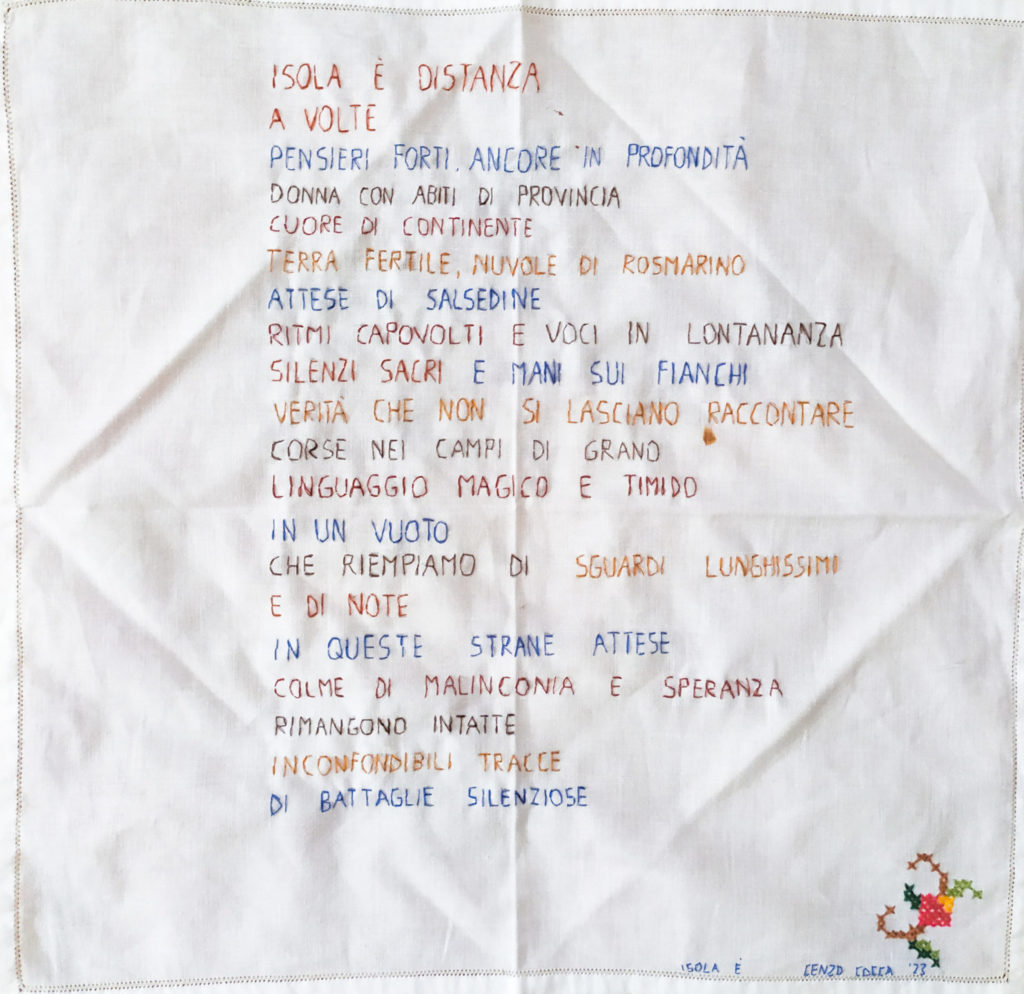 ISOLA È DISTANZA
A VOLTE
PENSIERI FORTI. ANCORE IN PROFONDITÀ
DONNA CON ABITI DI PROVINCIA
CUORE DI CONTINENTE
TERRA FERTILE, NUVOLE DI ROSMARINO
ATTESE DI SALSEDINE
RITMI CAPOVOLTI E VOCI IN LONTANANZA
SILENZI SACRI E MANI SUI FIANCHI
VERITÀ CHE NON SI LASCIANO RACCONTARE
CORSE NEI CAMPI DI GRANO
LINGUAGGIO MAGICO E TIMIDO
IN UN VUOTO
CHE RIEMPIAMO DI SGUARDI LUNGHISSIMI
E DI NOTE
IN QUESTE STRANE ATTESE
COLME DI MALINCONIA E SPERANZA
RIMANGONO INTATTE
INCONFONDIBILI TRACCE
DI BATTAGLIE SILENZIOSE
ISOLA È CENZO COCCA '23